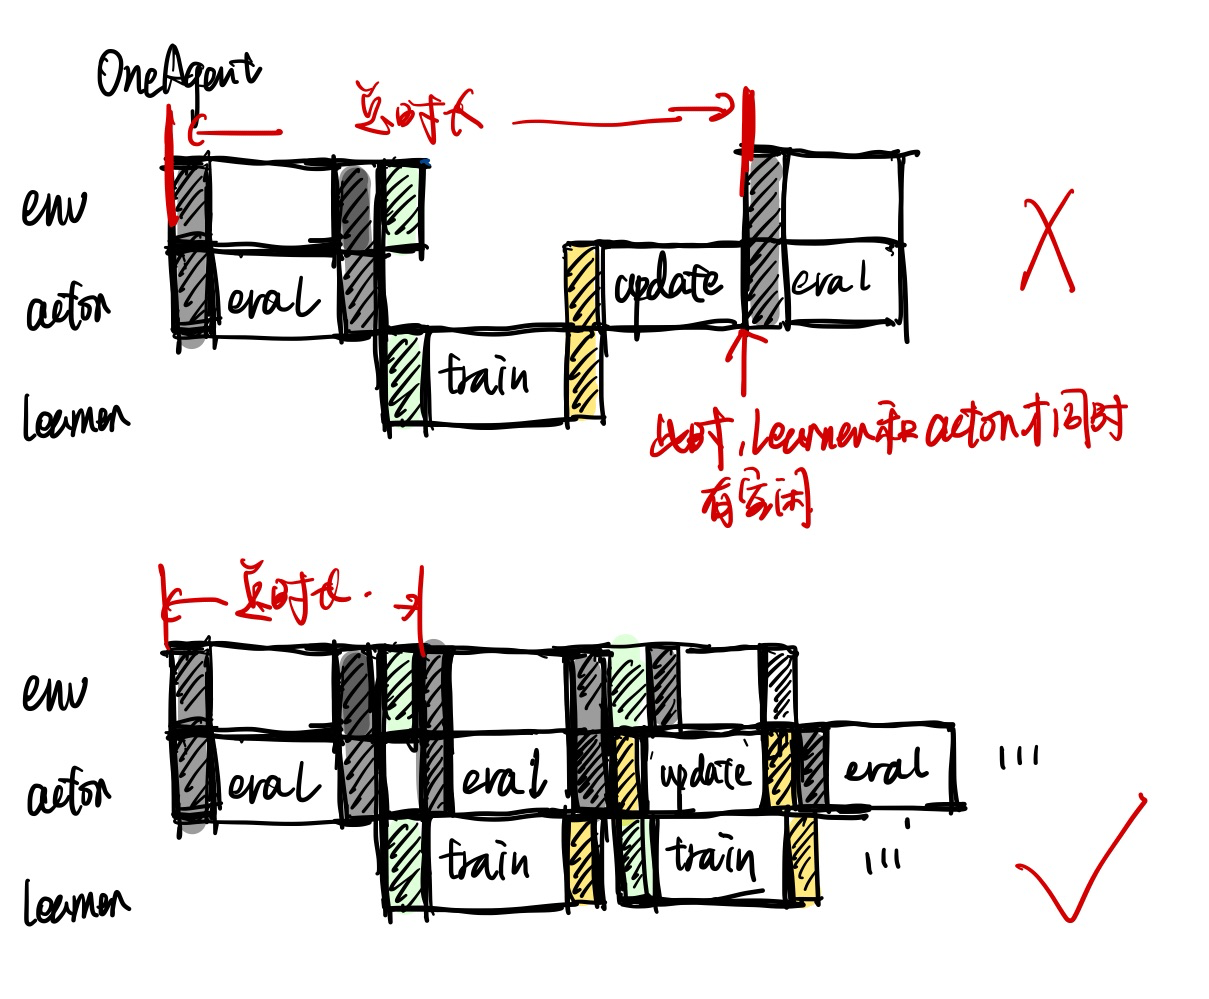 OneAgent
总时长
env
actor
learner
eval
train
update
eval
此时,learner和actor才同时
有空闲
总时长
env
actor
learner
eval
eval
update
eval
train
train